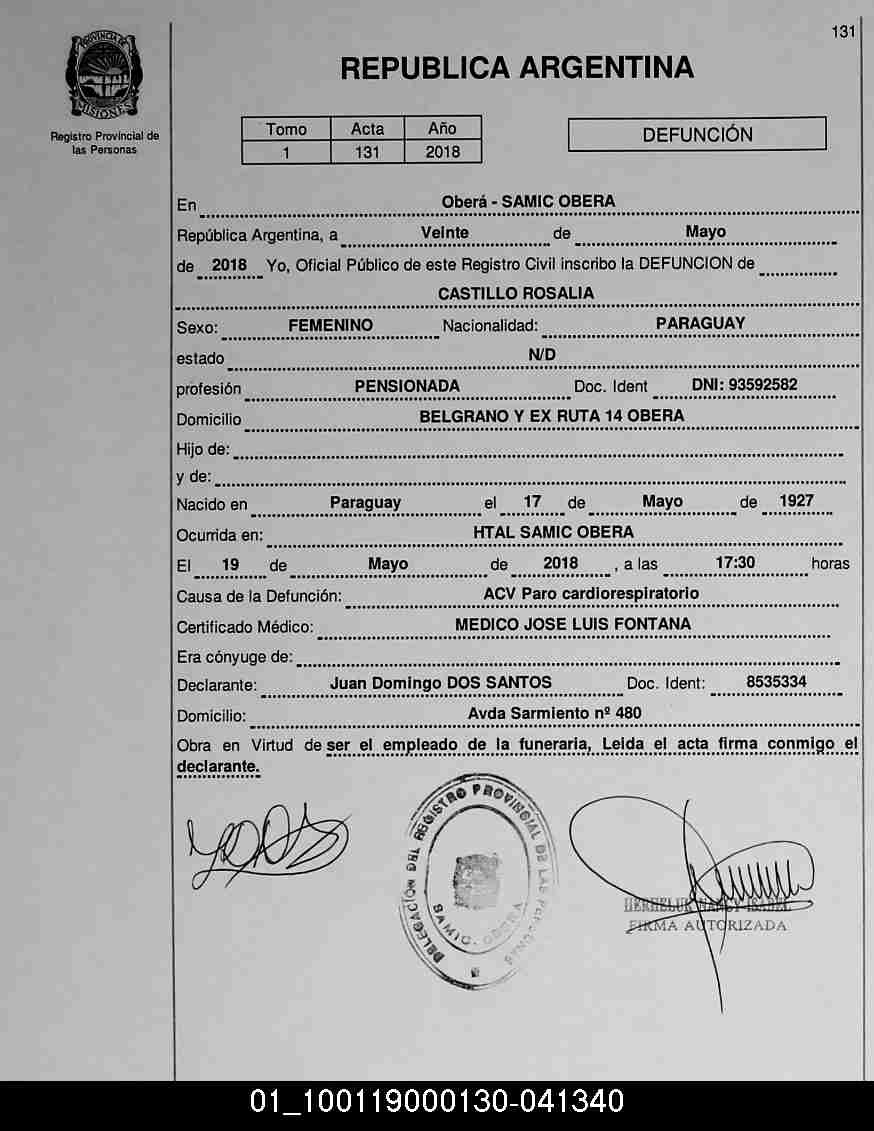 131
PROVINCIA DE
MISIONES
Registro Provincial de
las Personas
REPUBLICA ARGENTINA
Tomo Acta Año
1 131 2018
DEFUNCIÓN
En Oberá - SAMIC OBERA
República Argentina, a Veinte de Mayo
de 2018 Yo, Oficial Público de este Registro Civil inscribo la DEFUNCION de
CASTILLO ROSALIA
Sexo: FEMENINO Nacionalidad: PARAGUAY
estado N/D
profesión PENSIONADA Doc. Ident DNI: 93592582
Domicilio BELGRANO Y EX RUTA 14 OBERA
Hijo de:
y de:
Nacido en Paraguay el 17 de Mayo de 1927
Ocurrida en: HTAL SAMIC OBERA
El 19 de Mayo de 2018 , a las 17:30 horas
Causa de la Defunción: ACV Paro cardiorespiratorio
Certificado Médico: MEDICO JOSE LUIS FONTANA
Era cónyuge de:
Declarante: Juan Domingo DOS SANTOS Doc. Ident: 8535334
Domicilio: Avda Sarmiento nº 480
Obra en Virtud de ser el empleado de la funeraria, Leida el acta firma conmigo el
declarante.
DELEGACIÓN DEL REGISTRO PROVINCIAL DE LAS PERSONAS
SAMIC. OBERA
NANCY ISABEL
FIRMA AUTORIZADA
01_100119000130-041340